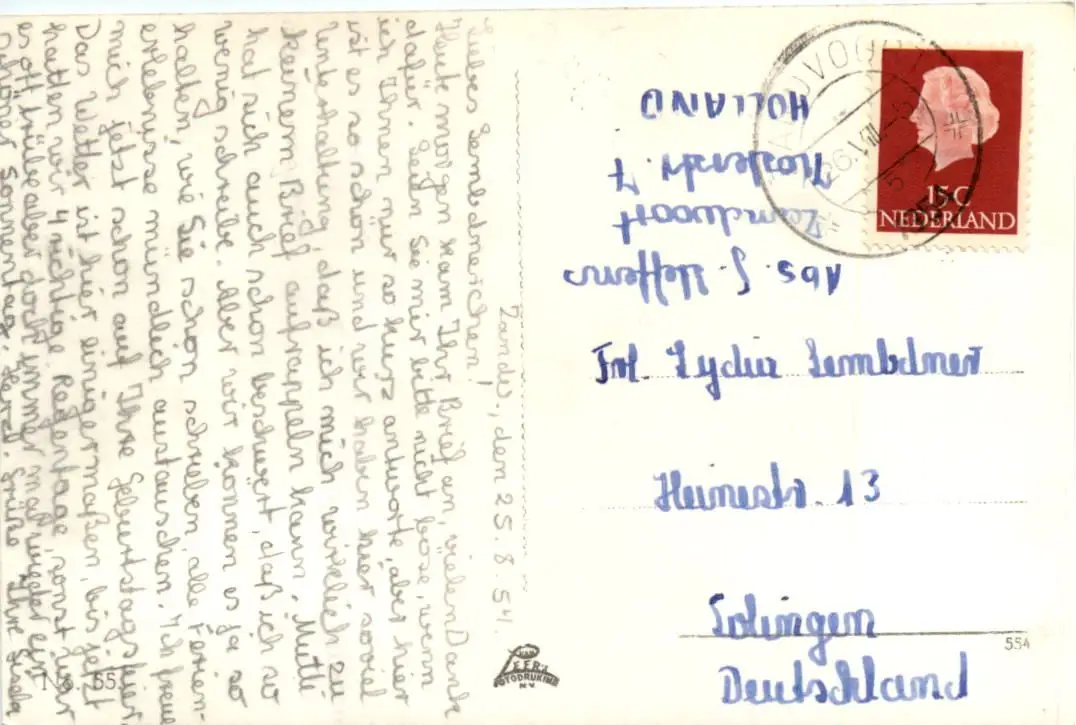 Zandv., den 25.8.54.
Liebes Lembdnerchen!
Heute morgen kam Ihr Brief an, vielen Dank
dafür. Seien Sie mir bitte nicht böse, wenn
ich Ihnen nur so kurz antworte, aber hier
ist es so schön und wir haben hier soviel
Unterhaltung, daß ich mich wirklich zu
keinem Brief aufrappeln kann. Mutti
hat sich auch schon beschwert, daß ich so
wenig schreibe. Aber wir können es ja so
halten, wie Sie schon schrieben, alle Ferien-
erlebnisse mündlich austauschen. Ich freue
mich jetzt schon auf Ihre Geburtstagsfeier.
Das Wetter ist hier einigermaßen, bis jetzt
hatten wir 4 richtige Regentage, sonst war
es oft trübe, aber doch immer mal wieder ein
schöner Sonnentag. Herzl. Grüße Ihre
No. 55
VAN
LEER'S
FOTODRUKIND
N.V.
Abs. J. Heffern
Zandvoort
7
HOLLAND
15 C
NEDERLAND
Frl. Lydia Lembdner
Heinestr. 13
Solingen
Deutschland
554